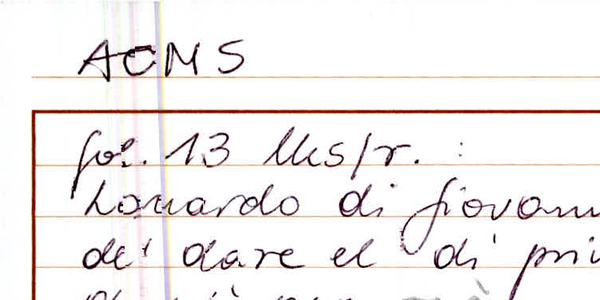 ACMS
fol. 13 lks/r. :
Lonardo di Giovann
de' dare el di pri